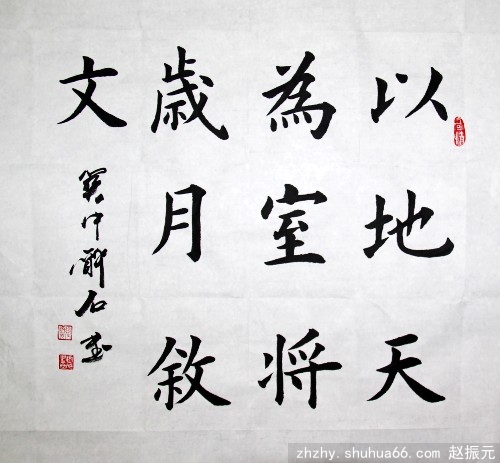 以地天
為室将
歳月敘
文
中醉石
zhzhy.shuhua66.com 赵振元